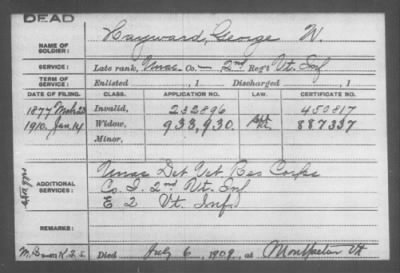 DEAD
NAME OF SOLDIER: Hayward, George W.
SERVICE: Late rank, Unas. Co. — 2nd Reg't Vt. Inf
TERM OF SERVICE: Enlisted , 1 Discharged , 1
DATE OF FILING. CLASS. APPLICATION NO. LAW. CERTIFICATE NO.
1877 Mch 23 Invalid, 232896 450817
1910. Jan. 14 Widow, 933,930. 887337
Minor,
ADDITIONAL SERVICES: Unas Det Vet Res Corps
Co. I. 2nd Vt. Inf
E 2 Vt. Inf.
REMARKS:
Died July 6, 1909, at Montpelier Vt